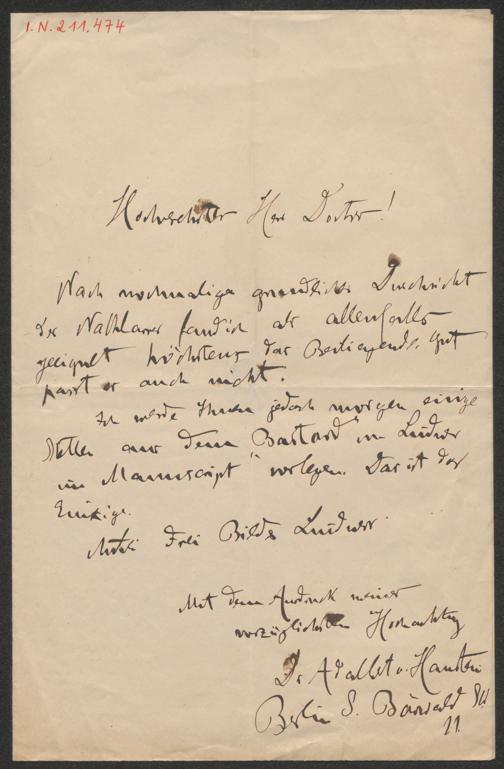 I.N. 211.474
Hochverehrter Herr Doctor!
Nach nochmaliger gruendlicher Durchsicht
des Nachlasses fand ich als allenfalls
geeignet höchstens das Beiliegende. Gut
passt es auch nicht.
Ich werde Ihnen jedoch morgen einige
Stellen aus dem "Bastard" von Lindner
im Manuscript vorlegen. Das ist das
Einzige.
drei Bilder Lindners
Mit dem Ausdruck meiner
vorzüglichsten Hochachtung
Dr Adalbert v. Hanstein
Berlin S. Bärwald
11.